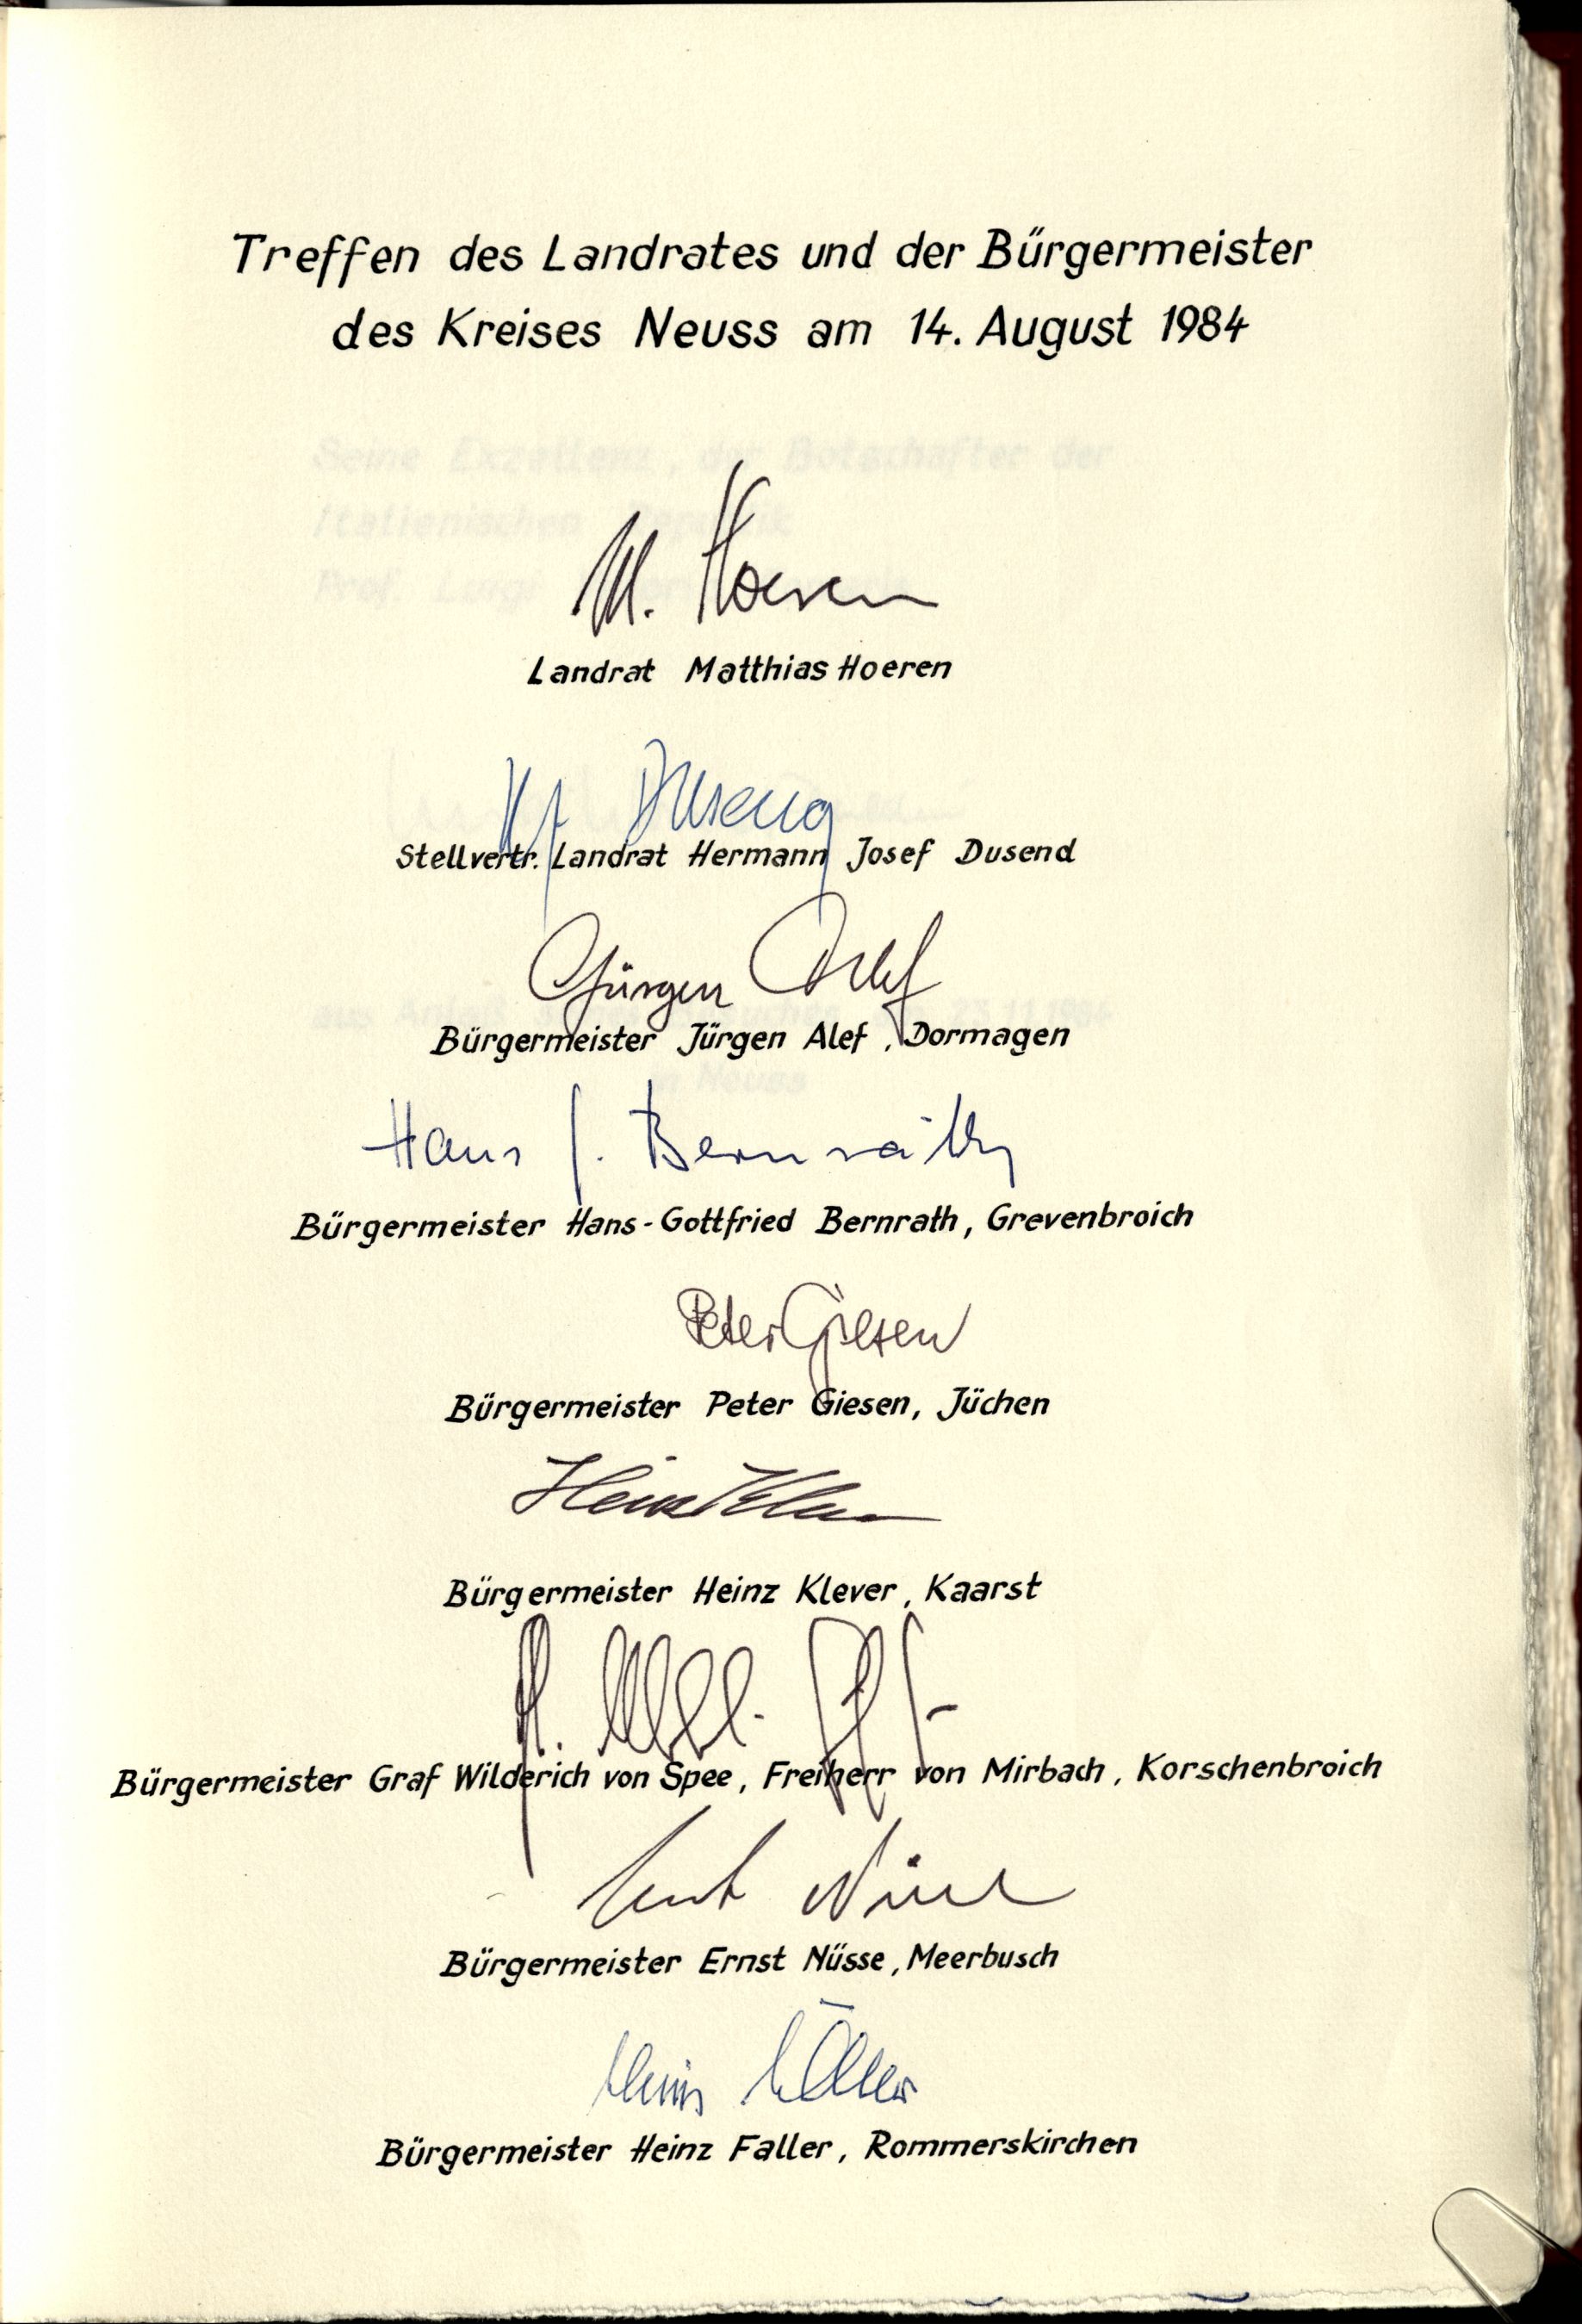 Treffen des Landrates und der Bürgermeister
des Kreises Neuss am 14. August 1984
M. Hoeren
Landrat Matthias Hoeren
Dusend
Stellvertr. Landrat Hermann Josef Dusend
Jürgen Alef
Bürgermeister Jürgen Alef, Dormagen
Hans J. Bernrath
Bürgermeister Hans-Gottfried Bernrath, Grevenbroich
Peter Giesen
Bürgermeister Peter Giesen, Jüchen
Heinz Klever
Bürgermeister Heinz Klever, Kaarst
Bürgermeister Graf Wilderich von Spee, Freiherr von Mirbach, Korschenbroich
Bürgermeister Ernst Nüsse, Meerbusch
Bürgermeister Heinz Faller, Rommerskirchen